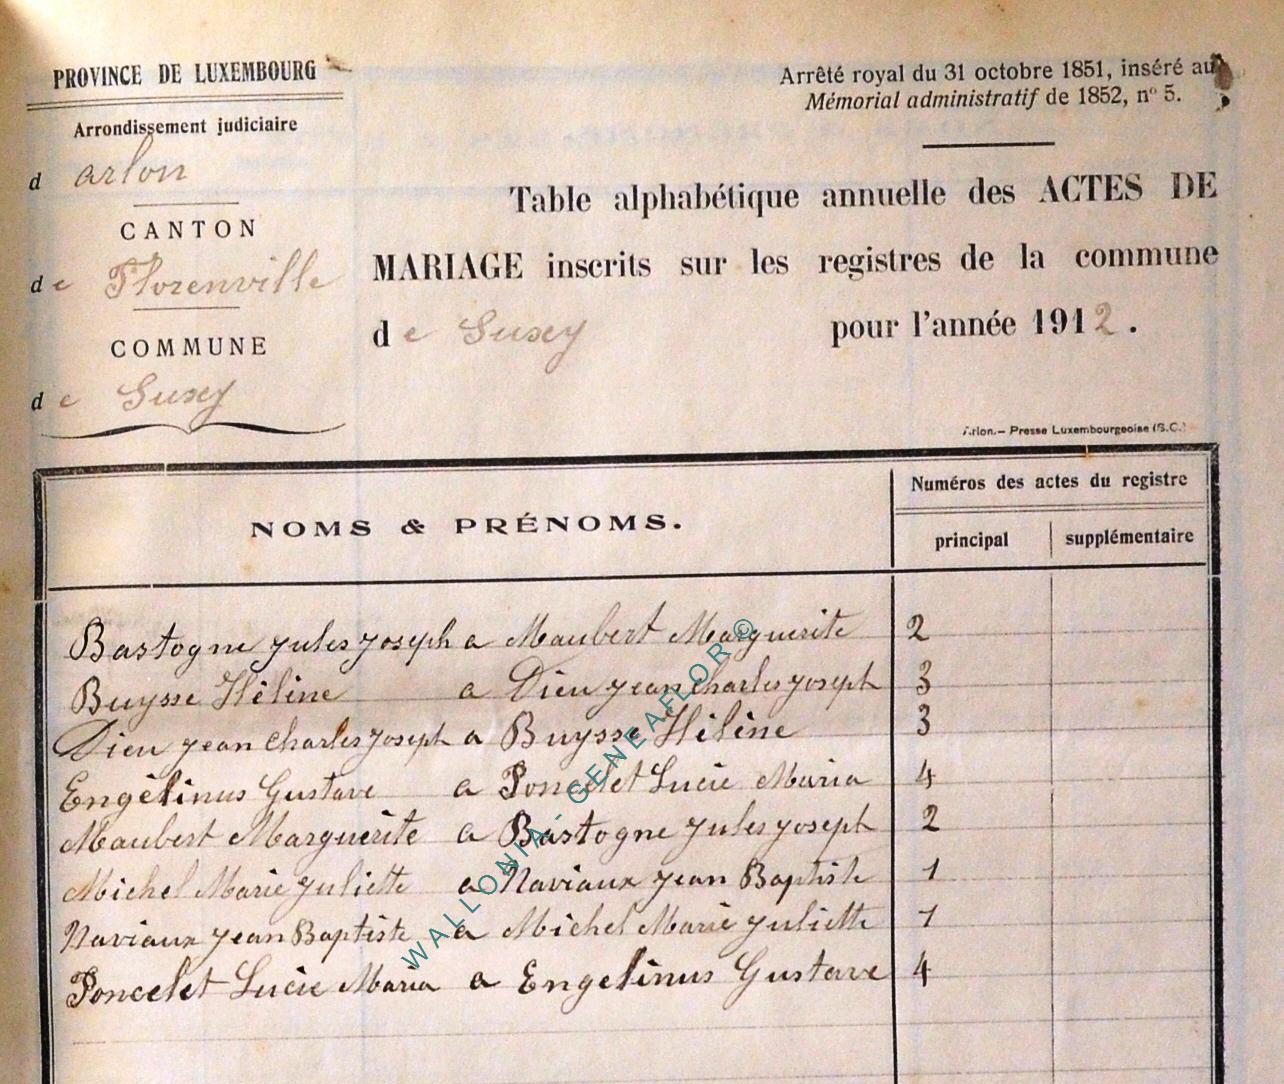 PROVINCE DE LUXEMBOURG
Arrondissement judiciaire
d arlon
CANTON
de Florenville
COMMUNE
de Suxy
Arrêté royal du 31 octobre 1851, inséré au
Mémorial administratif de 1852, n° 5.
Table alphabétique annuelle des ACTES DE
MARIAGE inscrits sur les registres de la commune
de Suxy pour l'année 1912.
Arlon.— Presse Luxembourgeoise (S.C.)
NOMS & PRÉNOMS.
Numéros des actes du registre
principal supplémentaire
Bastogne Jules Joseph a Maubert Marguerite 2
Buysse Hélène a Dieu Jean Charles Joseph 3
Dieu Jean Charles Joseph a Buysse Hélène 3
Engélinus Gustave a Poncelet Lucie Maria 4
Maubert Marguerite a Bastogne Jules Joseph 2
Michel Marie Juliette a Naviaux Jean Baptiste 1
Naviaux Jean Baptiste a Michel Marie Juliette 1
Poncelet Lucie Maria a Engelinus Gustave 4
WALLONIA - GENEAFLOR ©